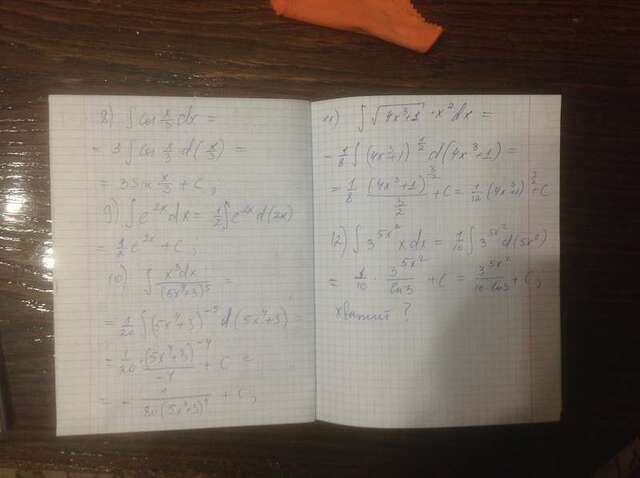 8) ∫ cos x/3 dx =
= 3 ∫ cos x/3 d(x/3) =
= 3 sin x/3 + C;
9) ∫ e^(2x) dx = 1/2 ∫ e^(2x) d(2x)
= 1/2 e^(2x) + C;
10) ∫ x³dx/(5x⁴+3)⁵ =
= 1/20 ∫ (5x⁴+3)^(-5) d(5x⁴+3) =
= 1/20 · (5x⁴+3)^(-4)/(-4) + C =
= - 1/(80(5x⁴+3)⁴) + C;
11) ∫ √(4x³+1) · x² dx =
= 1/8 ∫ (4x³+1)^(1/2) d(4x³+1) =
= 1/8 (4x³+1)^(3/2)/(3/2) + C = 1/12 (4x³+1)^(3/2) + C
12) ∫ 3^(5x²) x dx = 1/10 ∫ 3^(5x²) d(5x²)
= 1/10 · 3^(5x²)/ln3 + C = 3^(5x²)/(10 ln3) + C;
хватит?